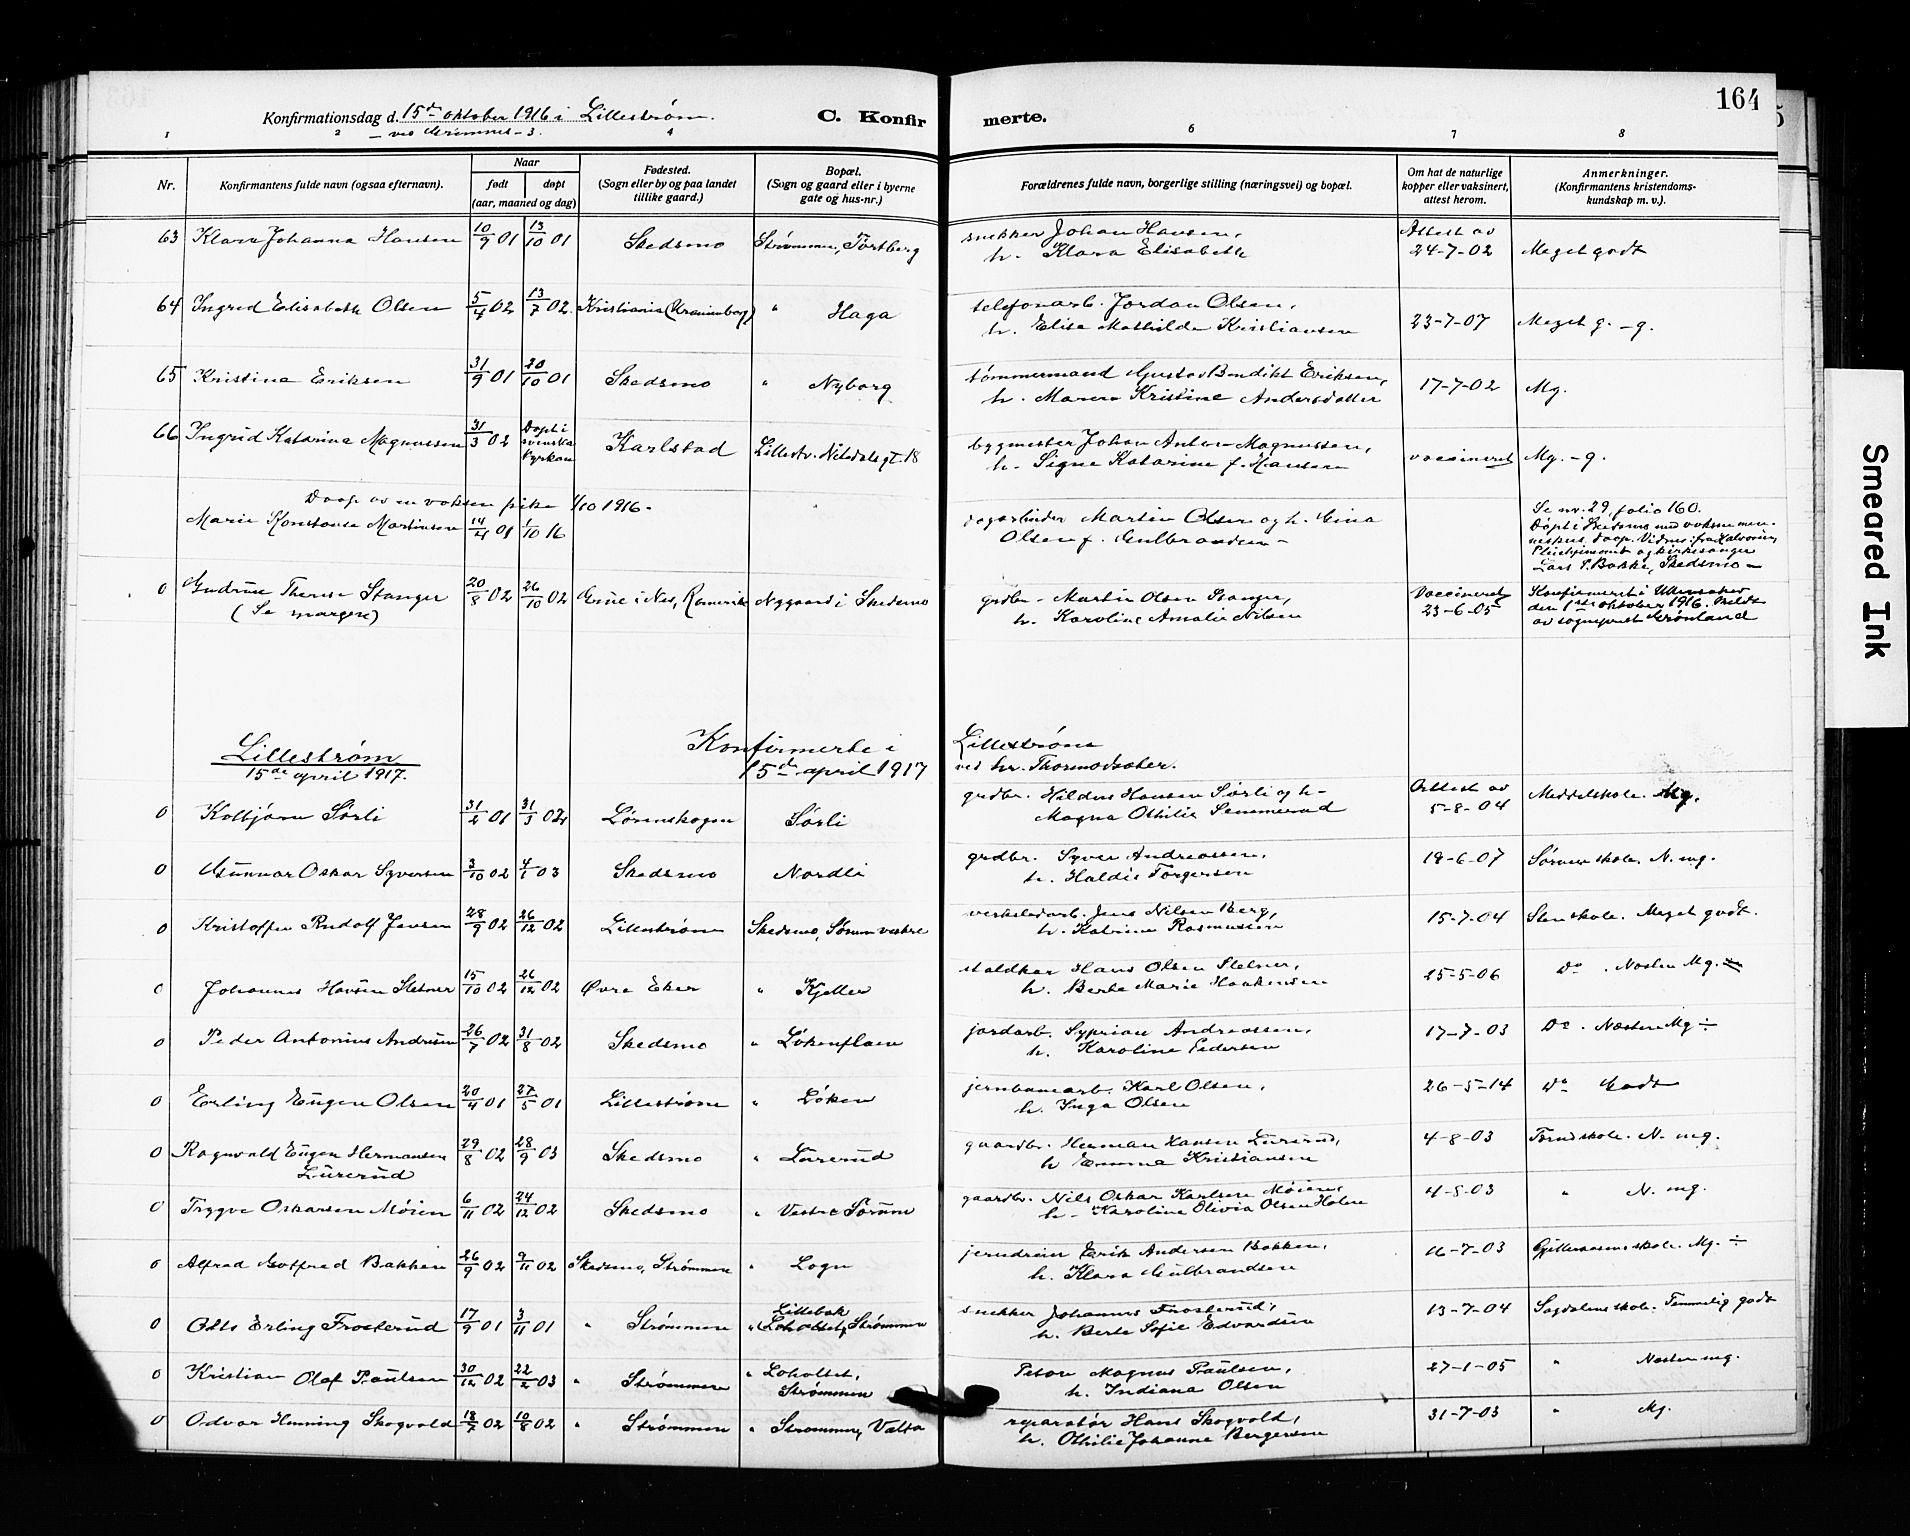 164
Konfirmationsdag d. 15de oktober 1916 i Lillestrøm. C. Konfirmerte.
1 2 3 4 6 7 8
Nr. Konfirmantens fulde navn (ogsaa efternavn). Naar født døpt (aar, maaned og dag) Fødested. (Sogn eller by og paa landet tillike gaard.) Bopæl. (Sogn og gaard eller i byerne gate og hus-nr.) Forældrenes fulde navn, borgerlige stilling (næringsvei) og bopæl. Om hat de naturlige kopper eller vaksinert, attest herom. Anmerkninger. (Konfirmantens kristendoms-kundskap m. v.).
63 Klara Johanna Hansen 10/9 01 13/10 01 Skedsmo Strømmen, Torsberg snekker Johan Hansen, h. Klara Elisabeth Attest av 24-7-02 Meget godt
64 Ingrid Elisabeth Olsen 5/4 02 13/7 02. Kristiania (Uranienborg) " Haga telefonarb. Jordan Olsen, h. Elise Mathilde Kristiansen 23-7-07 Meget g. -g.
65 Kristine Eriksen 31/9 01 20/10 01 Skedsmo " Nyborg tømmermand Gustav Bendikt Eriksen, h. Maren Kristine Andersdatter 17-7-02 Mg.
66 Ingrid Katarina Magnussen 31/3 02 Døpt i svenska kyrkan Karlstad Lillestr. Nitedalsgt. 18 bygmester Johan Anton Magnussen, h. Signe Katarina f. Hansen vaccineret Mg. -g.
Daap av en voksen pike 1/10 1916.
Marie Konstanse Martinsen 14/4 01 1/10 16 dagarbeider Martin Olsen og h. Gina Olsen f. Gulbrandsen - Se nr. 29, folio 160. Døpt i Skedsmo med voksne menneskers daap. Lars P. Bakke, Skedsmo -
0 Gudrun Therese Stanger (Se margen) 20/8 02 26/10 02 Grue i Nes, Romerike Nygaard i Skedsmo grdbr. Martin Olsen Stanger, h. Karoline Amalie Nilsen Vaccineret 23-6-05 Konfirmeret i Ullensaker den 1ste oktober 1916. Meldt av sogneprest Grønland
Lillestrøm
15de april 1917.
Konfirmerte i Lillestrøm
15de april 1917 ved hr. Thormodsæter.
0 Kolbjørn Sørli 31/2 01 31/3 02 Lørenskogen Sørli grdbr. Hildus Hansen Sørli og h. Magna Othilie Semmerud Attest av 5-8-04 Middelskole. Mg.
0 Gunnar Oskar Syversen 3/10 02 4/1 03 Skedsmo Nordli grdbr. Syver Andreassen, h. Haldis Torgersen 18-6-07 Sørum skole. N. mg.
0 Kristoffer Rudolf Jensen 28/9 02 26/12 02 Lillestrøm Skedsmo, Sørum vestre verkstedarb. Jens Nilsen Berg, h. Katrine Rasmussen 15-7-04 Stenskole. Meget godt.
0 Johannes Hansen Stelner 15/10 02 26/12 02 Øvre Eker " Kjeller staldkar Hans Olsen Stelner, h. Berte Marie Haakensen 25-5-06 Do. Næsten Mg.
0 Peder Antonius Andresen 26/7 02 31/8 02 Skedsmo " Løkenflaen jordarb. Syprian Andreassen, h. Karoline Pedersen 17-7-03 Do. Næsten Mg ÷
0 Erling Eugen Olsen 20/4 01 27/5 01 Lillestrøm " Løken jernbanearb. Karl Olsen, h. Inga Olsen 26-5-14 Do Godt
0 Ragnvald Eugen Hermansen Lurerud 29/8 02 28/9 03 Skedsmo " Lurerud gaardbr. Herman Hansen Lurerud, h. Emma Kristiansen 4-8-03 Tornskole. N. mg.
0 Trygve Oskarsen Møien 6/11 02 24/12 02 Skedsmo " Vestre Sørum gaardbr. Nils Oskar Karlsen Møien, h. Karoline Olivia Olsen Holen 4-8-03 " N. mg.
0 Alfred Gotfred Bakken 26/9 02 9/11 02 Skedsmo, Strømmen " Logn jerndreier Erik Andersen Bakken, h. Klara Gulbrandsen 16-7-03 Gjelleraasen skole. Mg. ÷
0 Otto Erling Frosterud 17/9 01 3/11 01 " Strømmen " Lillebak Loholtet, Strømmen snekker Johannes Frosterud, h. Berte Sofie Edvardsen 13-7-04 Sagdalens skole. Temmelig godt
0 Kristian Olaf Paulsen 30/12 02 22/2 03 " Strømmen " Loholtet, Strømmen Peter Magnus Paulsen, h. Indiana Olsen 27-1-05 " Næsten mg.
0 Odvar Henning Skogvold 18/7 02 10/8 02 " Strømmen " Strømmen, Valta reparatør Hans Skogvold, h. Othilie Johanne Bergersen 31-7-03 " Mg.
Smeared Ink